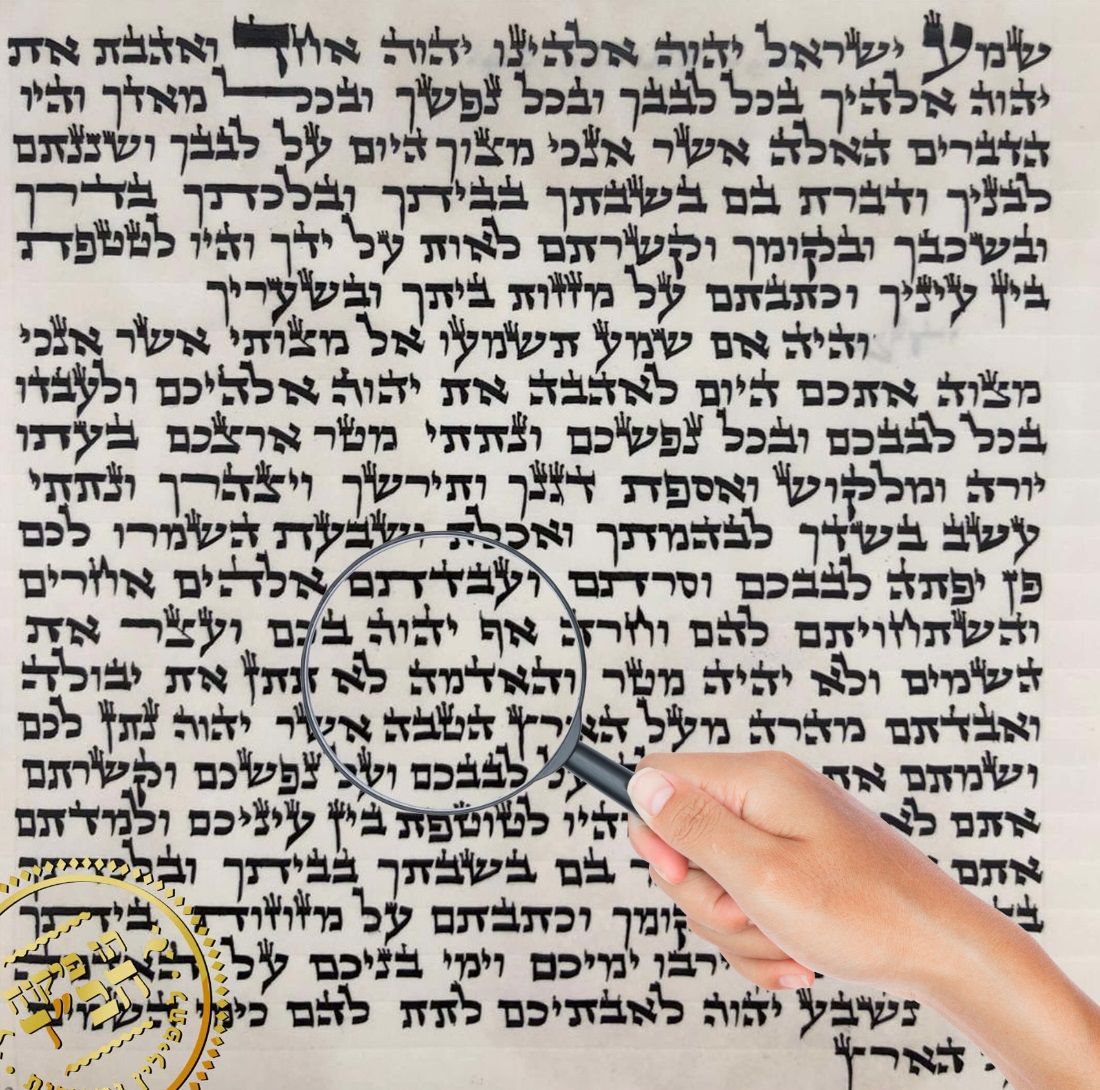 שמע ישראל יהוה אלהינו יהוה אחד ואהבת את
יהוה אלהיך בכל לבבך ובכל נפשך ובכל מאדך והיו
הדברים האלה אשר אנכי מצוך היום על לבבך ושננתם
לבניך ודברת בם בשבתך בביתך ובלכתך בדרך
ובשכבך ובקומך וקשרתם לאות על ידך והיו לטטפת
בין עיניך וכתבתם על מזזות ביתך ובשעריך
והיה אם שמע תשמעו אל מצותי אשר אנכי
מצוה אתכם היום לאהבה את יהוה אלהיכם ולעבדו
בכל לבבכם ובכל נפשכם ונתתי מטר ארצכם בעתו
יורה ומלקוש ואספת דגנך ותירשך ויצהרך ונתתי
עשב בשדך לבהמתך ואכלת ושבעת השמרו לכם
פן יפתה לבבכם וסרתם ועבדתם אלהים אחרים
והשתחויתם להם וחרה אף יהוה בכם ועצר את
השמים ולא יהיה מטר והאדמה לא תתן את יבולה
ואבדתם מהרה מעל הארץ הטבה אשר יהוה נתן לכם
ושמתם את על לבבכם ועל נפשכם וקשרתם
אתם והיו לטוטפת בין עיניכם ולמדתם
אתם בם בשבתך בביתך
וכתבתם על מזוזות ביתך
ירבו ימיכם וימי בניכם על
נשבע יהוה לאבתיכם לתת להם כימי השמים
הארץ
לתפילין